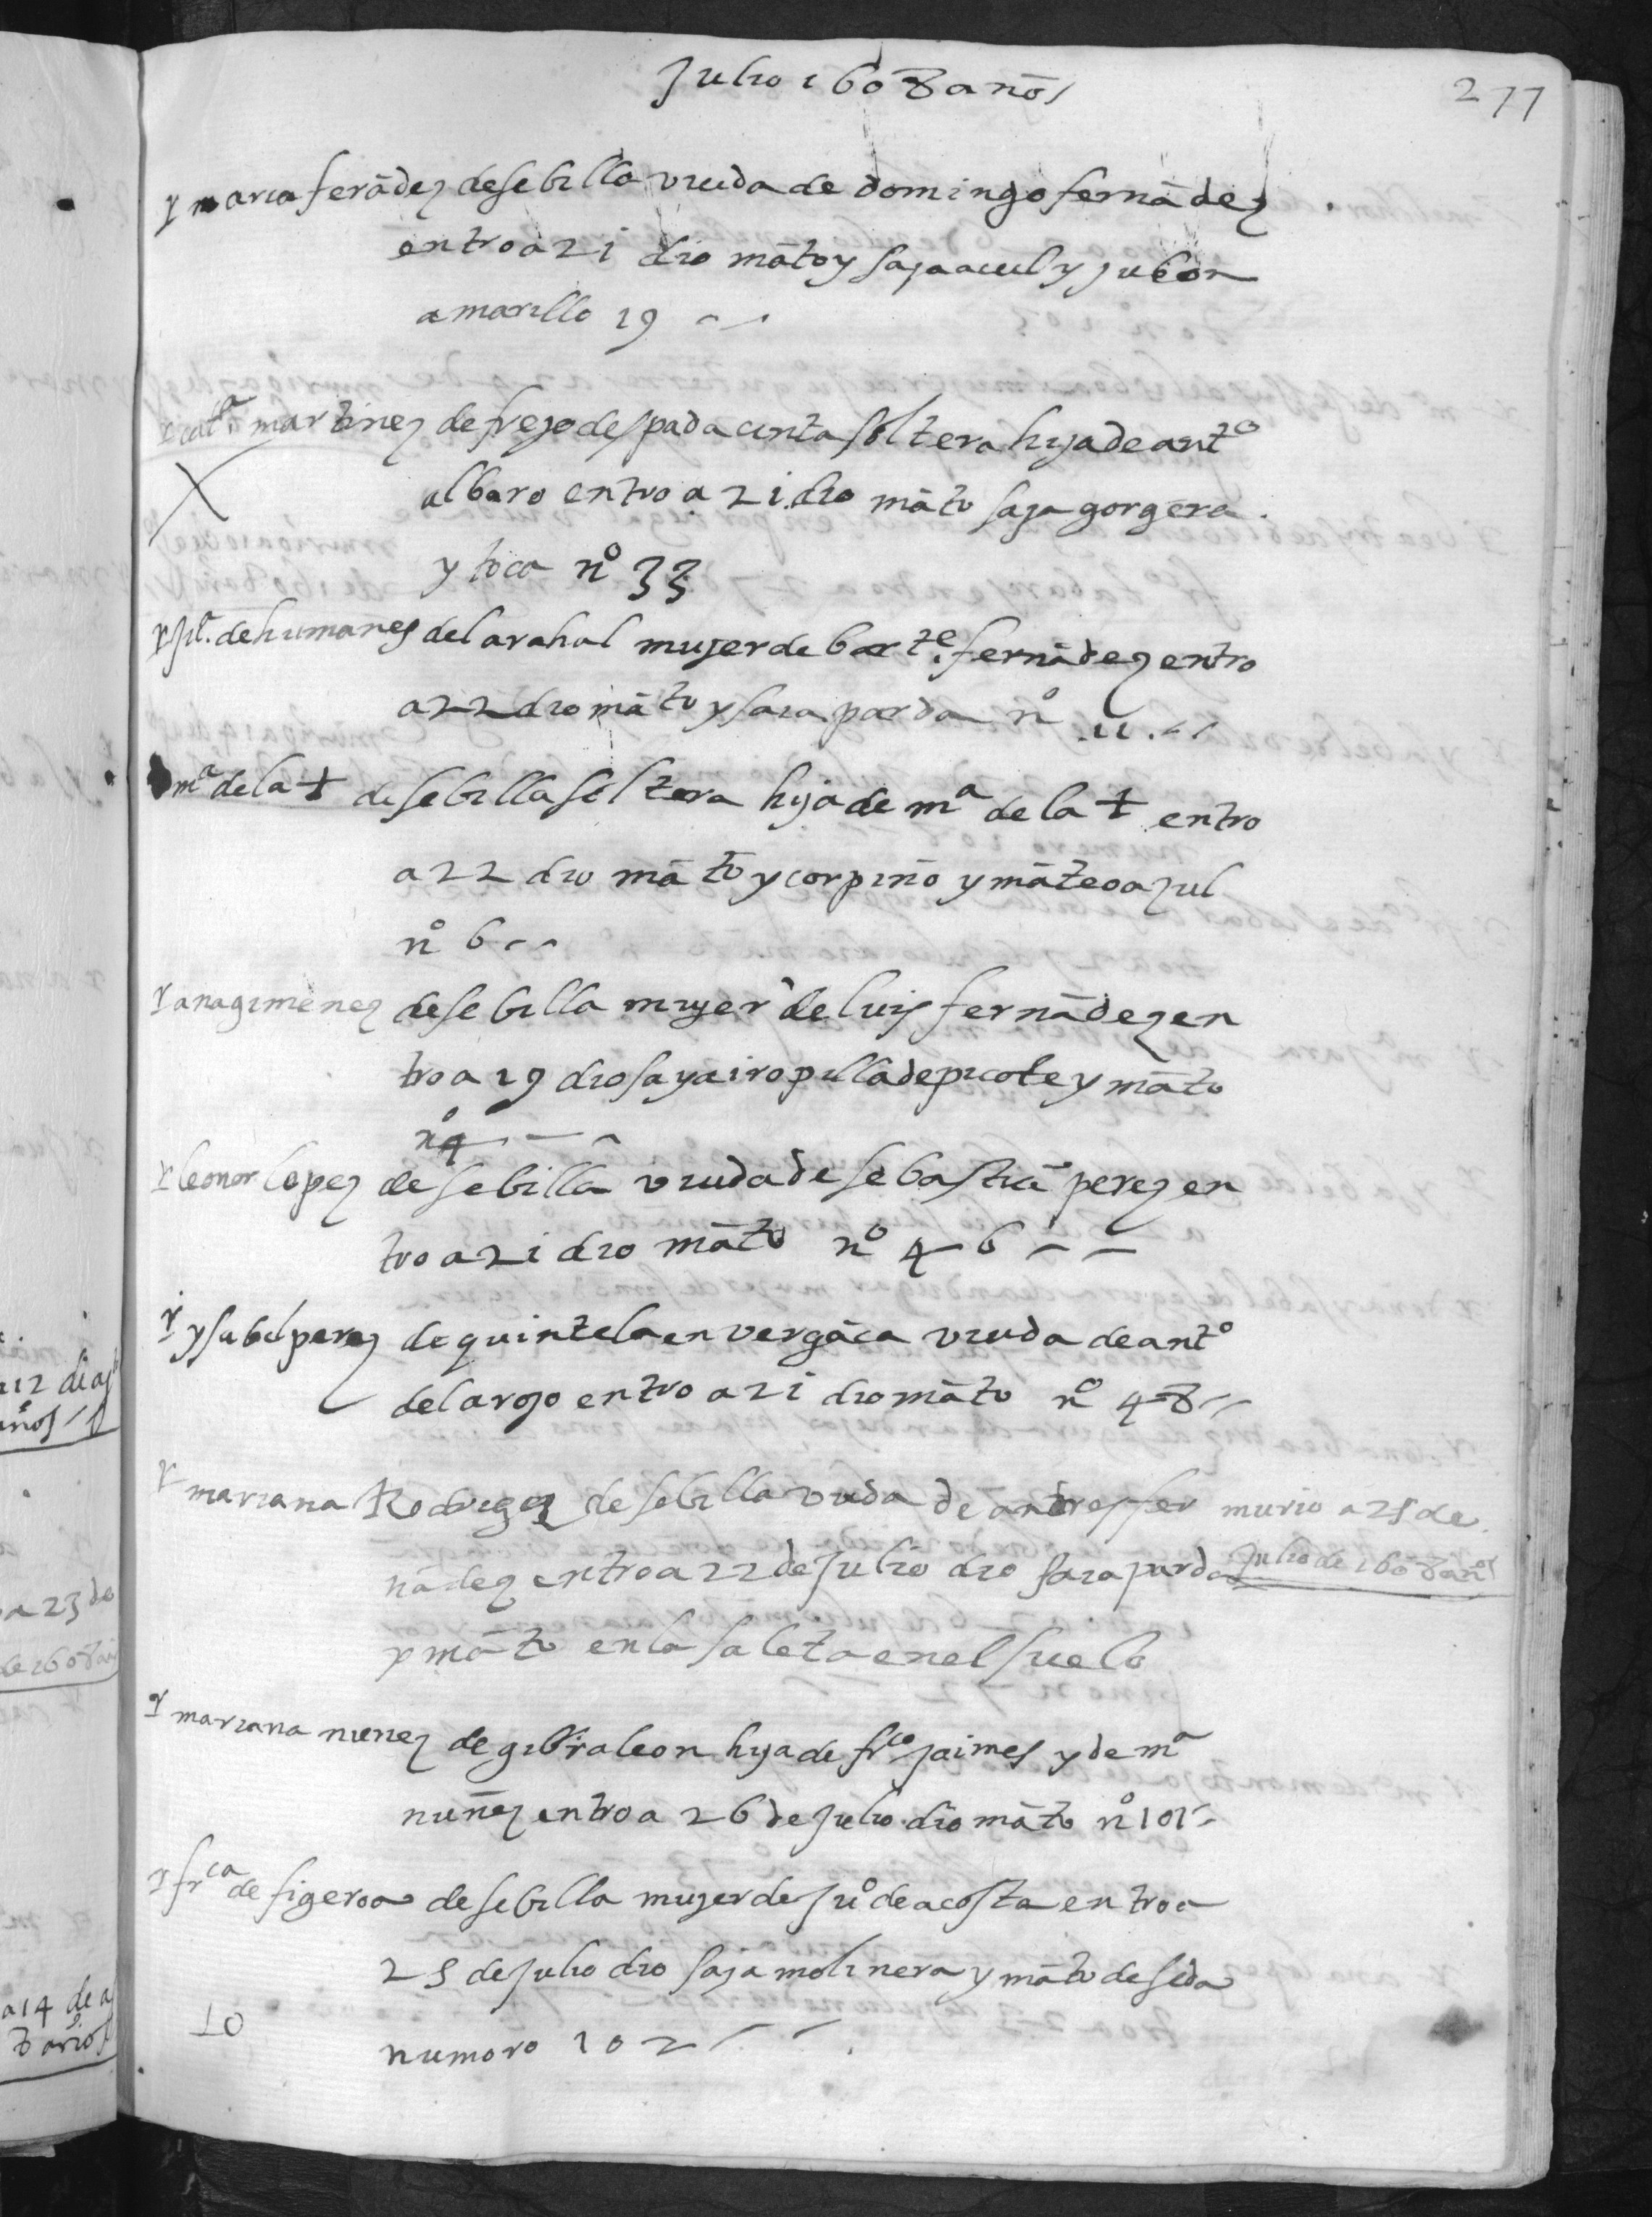 Julio 1608 años
277
maria ferãdez de sebilla viuda de domingo fernãdez
entro a 21 dio mãto y saja açul y jubon
amarillo 19
catª martinez de frejo despada cinta soltera hija de antº
albaro entro a 21 dio mãto saja gorgera
y toca nº 33
de humanes del arahal mujer de barᵗᵉ fernãdez entro
a 22 dio mãto y saia parda nº 11
mª de la † de sebilla soltera hija de mª de la † entro
a 22 dio mãto y corpiño y mãteo açul
nº 6
ana gimenez de sebilla mujer de luis fernãdez en
tro a 19 dio saya i ropilla de picote y mãto
nº 4
leonor lopez de sebilla viuda de sebastiã perez en
tro a 21 dio mãto nº 46
ysabel perez de quintela en vergãca viuda de antº
del arojo entro a 21 dio mãto nº 48
mariana Rodrigez de sebilla viuda de andres fer
nãdez entro a 22 de Julio dio saia parda
y mãto en la saleta en el suelo
murio a 25 de
Julio de 1608 años
mariana nunez de gibraleon hija de frᶜᵒ jaimes y de mª
nuñez entro a 26 de Julio dio mãto nº 101
frᶜᵃ de figeroa de sebilla mujer de Juº de acosta entro a
25 de Julio dio saja molinera y mãto de seda
numoro 102
10